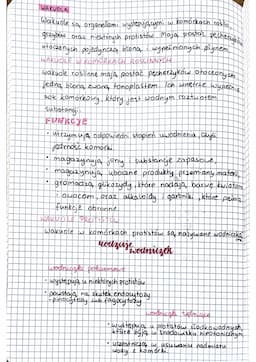 WAKUOLA
Wakuole są organellami występującymi w komórkach roślin
grzybów oraz niektórych protistów. Mają postać pęcherzyków
otoczonych pojedynczą błoną i wypełnionych płynem.
WAKUOLE W KOMÓRKACH ROŚLINNYCH
Wakuole roślinne mają postać pęcherzyków otoczonych
jedną błoną zwaną tonoplastem. Ich wnętrze wypełnia
sok komórkowy, który jest wodnym roztworem
substancji.
FUNKCJE
• utrzymują odpowiedni stopień uwodnienia, czyli
jędrność komórki.
• magazynują jony i substancje zapasowe,
• magazynują uboczne produkty przemiany materii,
• gromadzą glikozydy, które nadają barwę kwiatom
i owocom, oraz alkaloidy i garbniki, które pełnią
funkcje obronne.
WAKUOLE PROTISTÓW
Wakuole w komórkach protistów są nazywane wodniczkami
Rodzaje wodniczek
wodniczki pokarmowe
- występują u niektórych protistów
- powstają na skutek endocytozy
- pinocytozy lub fagocytozy
wodniczki tętniące
- występują u protistów słodkowodnych,
które żyją w środowisku hipotonicznym,
- uczestniczą w usuwaniu nadmiaru
wody z komórki.